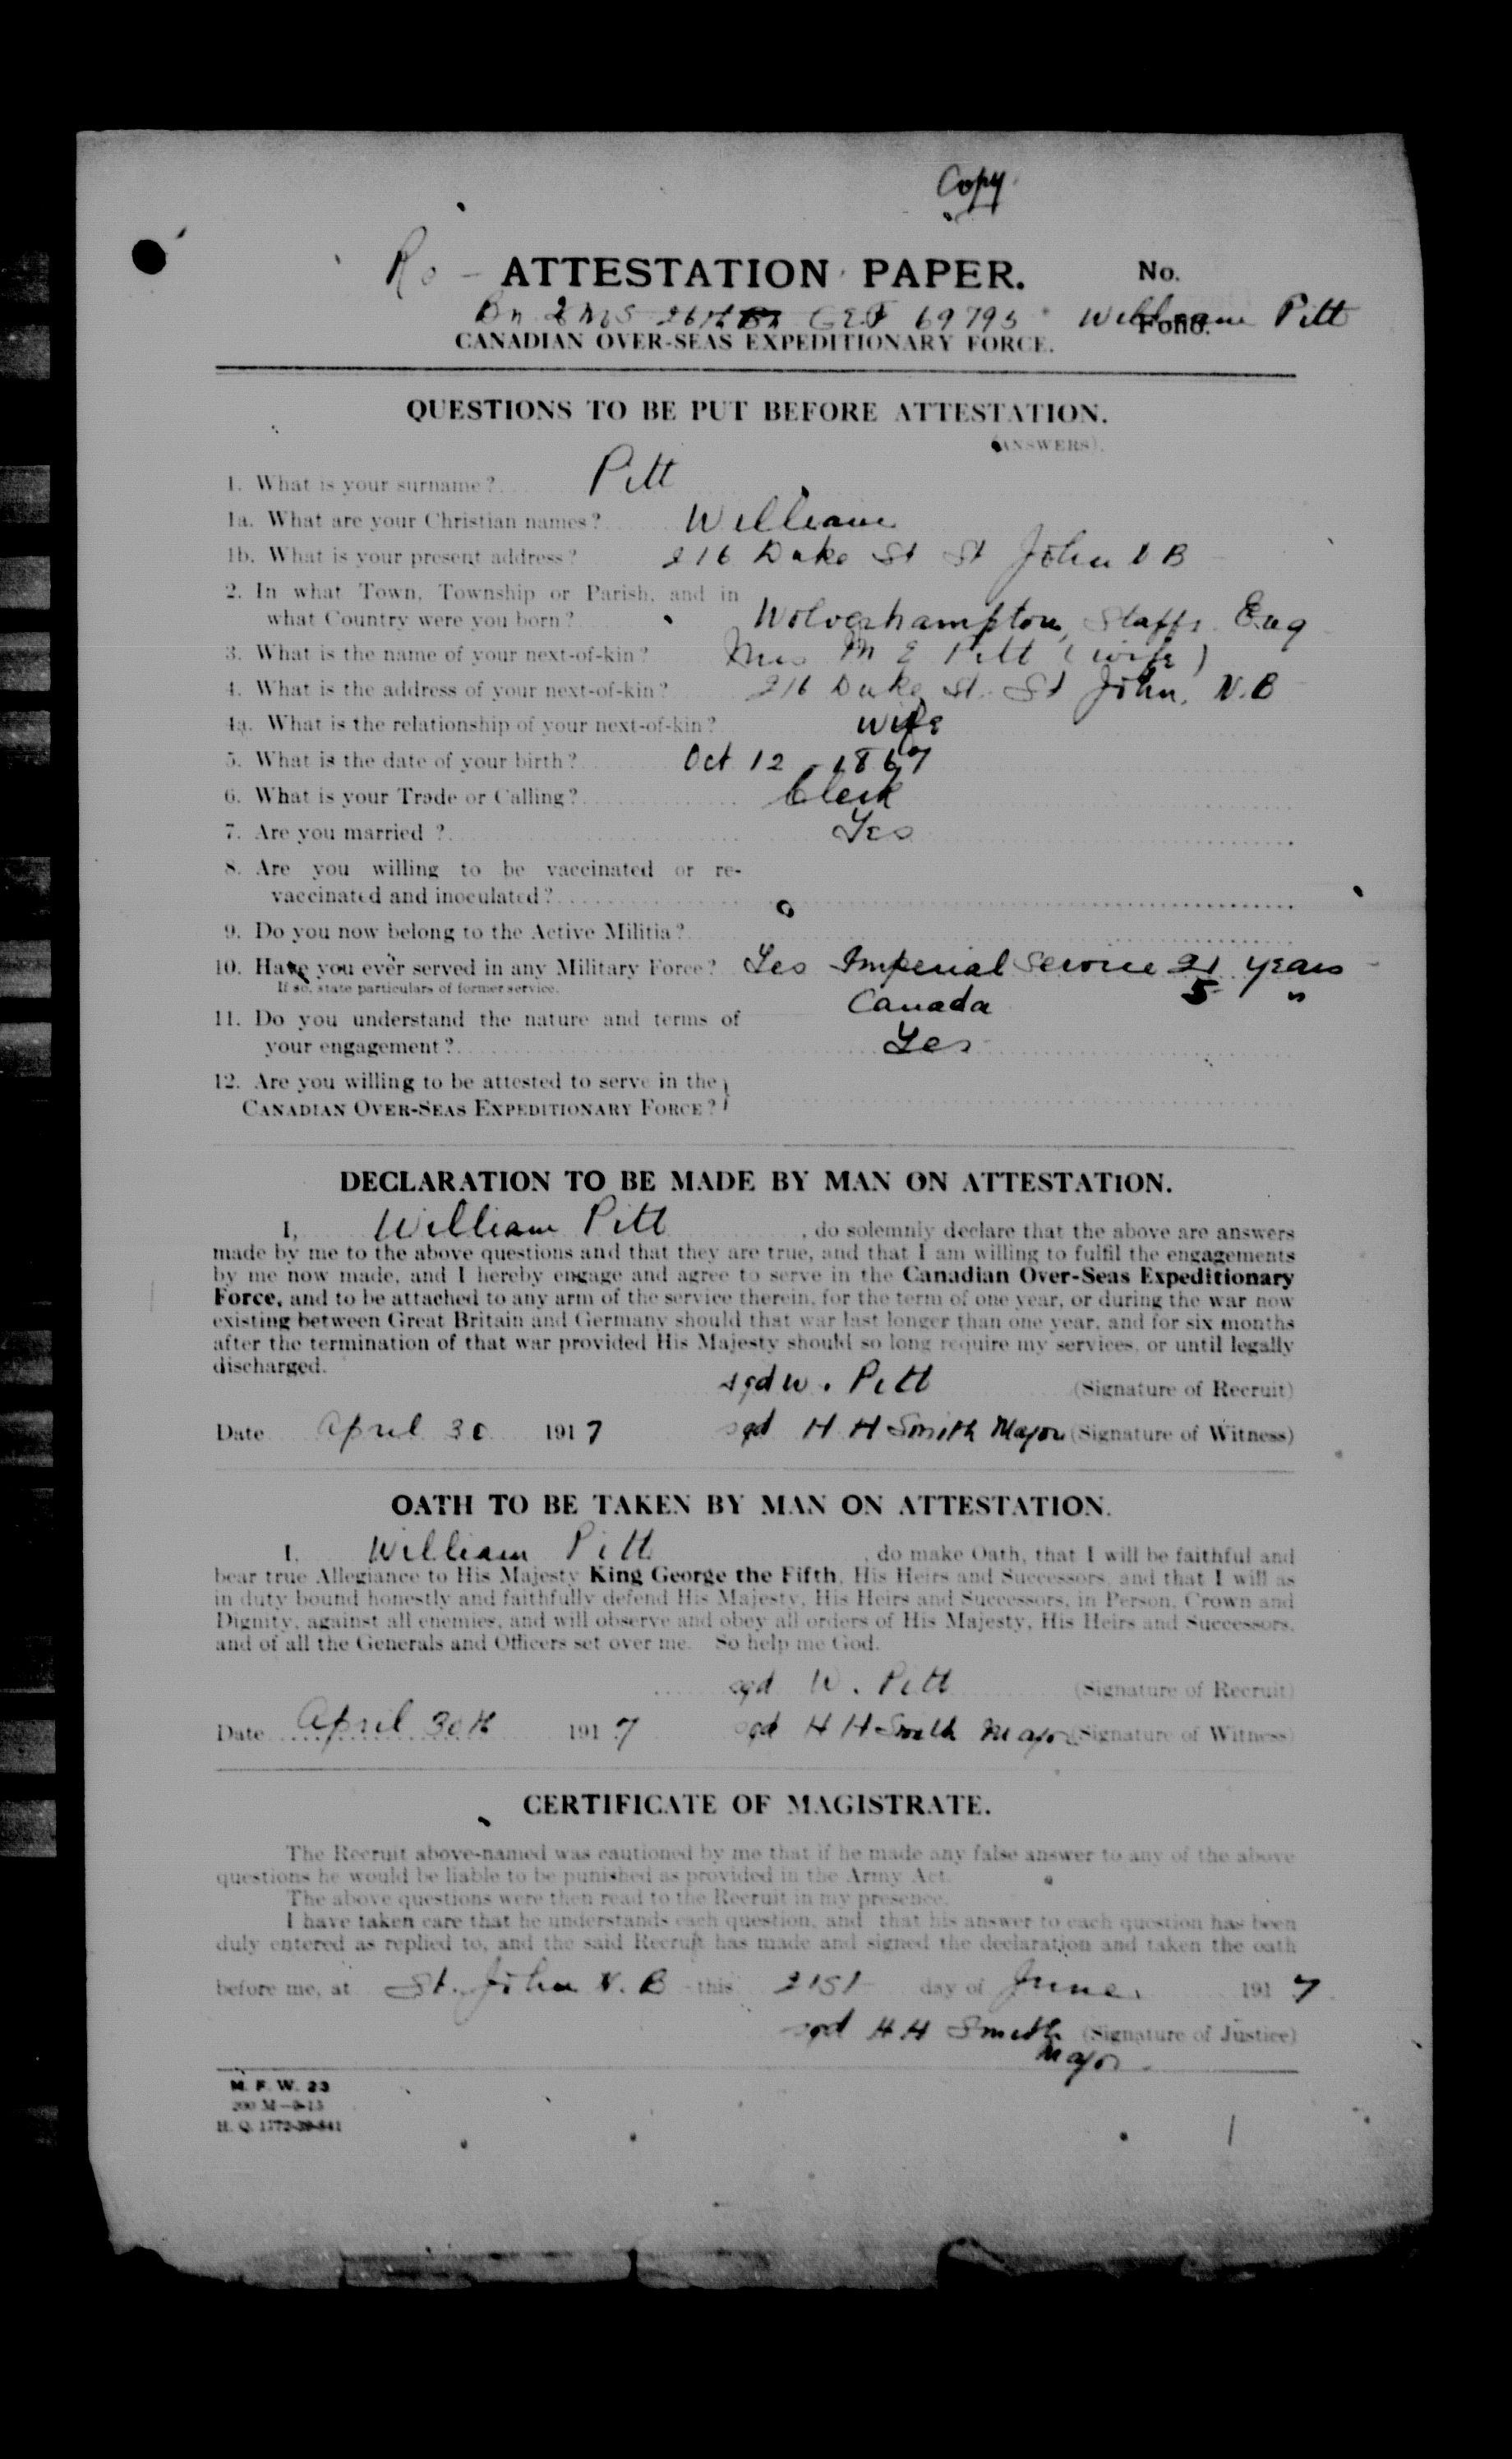 Copy
Re - ATTESTATION PAPER. No.
Bn Q M S 26th Bn C E F 69793 William Pitt
Folio.
CANADIAN OVER-SEAS EXPEDITIONARY FORCE.
QUESTIONS TO BE PUT BEFORE ATTESTATION.
(ANSWERS).
1. What is your surname? Pitt
1a. What are your Christian names? William
1b. What is your present address? 216 Duke St St John N B
2. In what Town, Township or Parish, and in
what Country were you born? Wolverhampton, Staffs Eng
3. What is the name of your next-of-kin? Mrs M E Pitt (wife)
4. What is the address of your next-of-kin? 216 Duke St. St John, N.B
4a. What is the relationship of your next-of-kin? Wife
5. What is the date of your birth? Oct 12 1867
6. What is your Trade or Calling? Clerk
7. Are you married ? Yes
8. Are you willing to be vaccinated or re-
vaccinated and inoculated?
9. Do you now belong to the Active Militia?
10. Have you ever served in any Military Force? Yes Imperial Service 21 years
If so, state particulars of former service. Canada 5 "
11. Do you understand the nature and terms of
your engagement? Yes
12. Are you willing to be attested to serve in the
CANADIAN OVER-SEAS EXPEDITIONARY FORCE?
DECLARATION TO BE MADE BY MAN ON ATTESTATION.
I, William Pitt, do solemnly declare that the above are answers
made by me to the above questions and that they are true, and that I am willing to fulfil the engagements
by me now made, and I hereby engage and agree to serve in the Canadian Over-Seas Expeditionary
Force, and to be attached to any arm of the service therein, for the term of one year, or during the war now
existing between Great Britain and Germany should that war last longer than one year, and for six months
after the termination of that war provided His Majesty should so long require my services, or until legally
discharged.
sgd W. Pitt (Signature of Recruit)
Date April 30 1917 sgd H H Smith Major (Signature of Witness)
OATH TO BE TAKEN BY MAN ON ATTESTATION.
I, William Pitt, do make Oath, that I will be faithful and
bear true Allegiance to His Majesty King George the Fifth, His Heirs and Successors, and that I will as
in duty bound honestly and faithfully defend His Majesty, His Heirs and Successors, in Person, Crown and
Dignity, against all enemies, and will observe and obey all orders of His Majesty, His Heirs and Successors,
and of all the Generals and Officers set over me. So help me God.
sgd W. Pitt (Signature of Recruit)
Date April 30th 1917 sgd H H Smith Major (Signature of Witness)
CERTIFICATE OF MAGISTRATE.
The Recruit above-named was cautioned by me that if he made any false answer to any of the above
questions he would be liable to be punished as provided in the Army Act.
The above questions were then read to the Recruit in my presence.
I have taken care that he understands each question, and that his answer to each question has been
duly entered as replied to, and the said Recruit has made and signed the declaration and taken the oath
before me, at St. John N. B this 21st day of June, 1917
sgd H H Smith (Signature of Justice)
Major
M. F. W. 23
200 M-9-15
H. Q. 1772-39-841